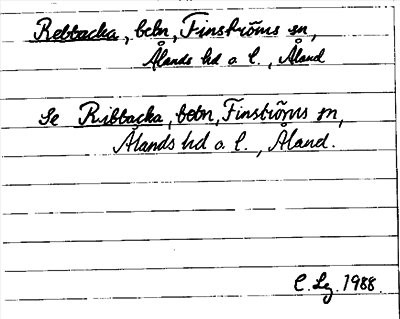 Rebbacka, bebn, Finströms sn,
Ålands hd o. l., Åland
Se Ribbacka, bebn, Finströms sn,
Ålands hd o. l., Åland.
C. Lg. 1988.